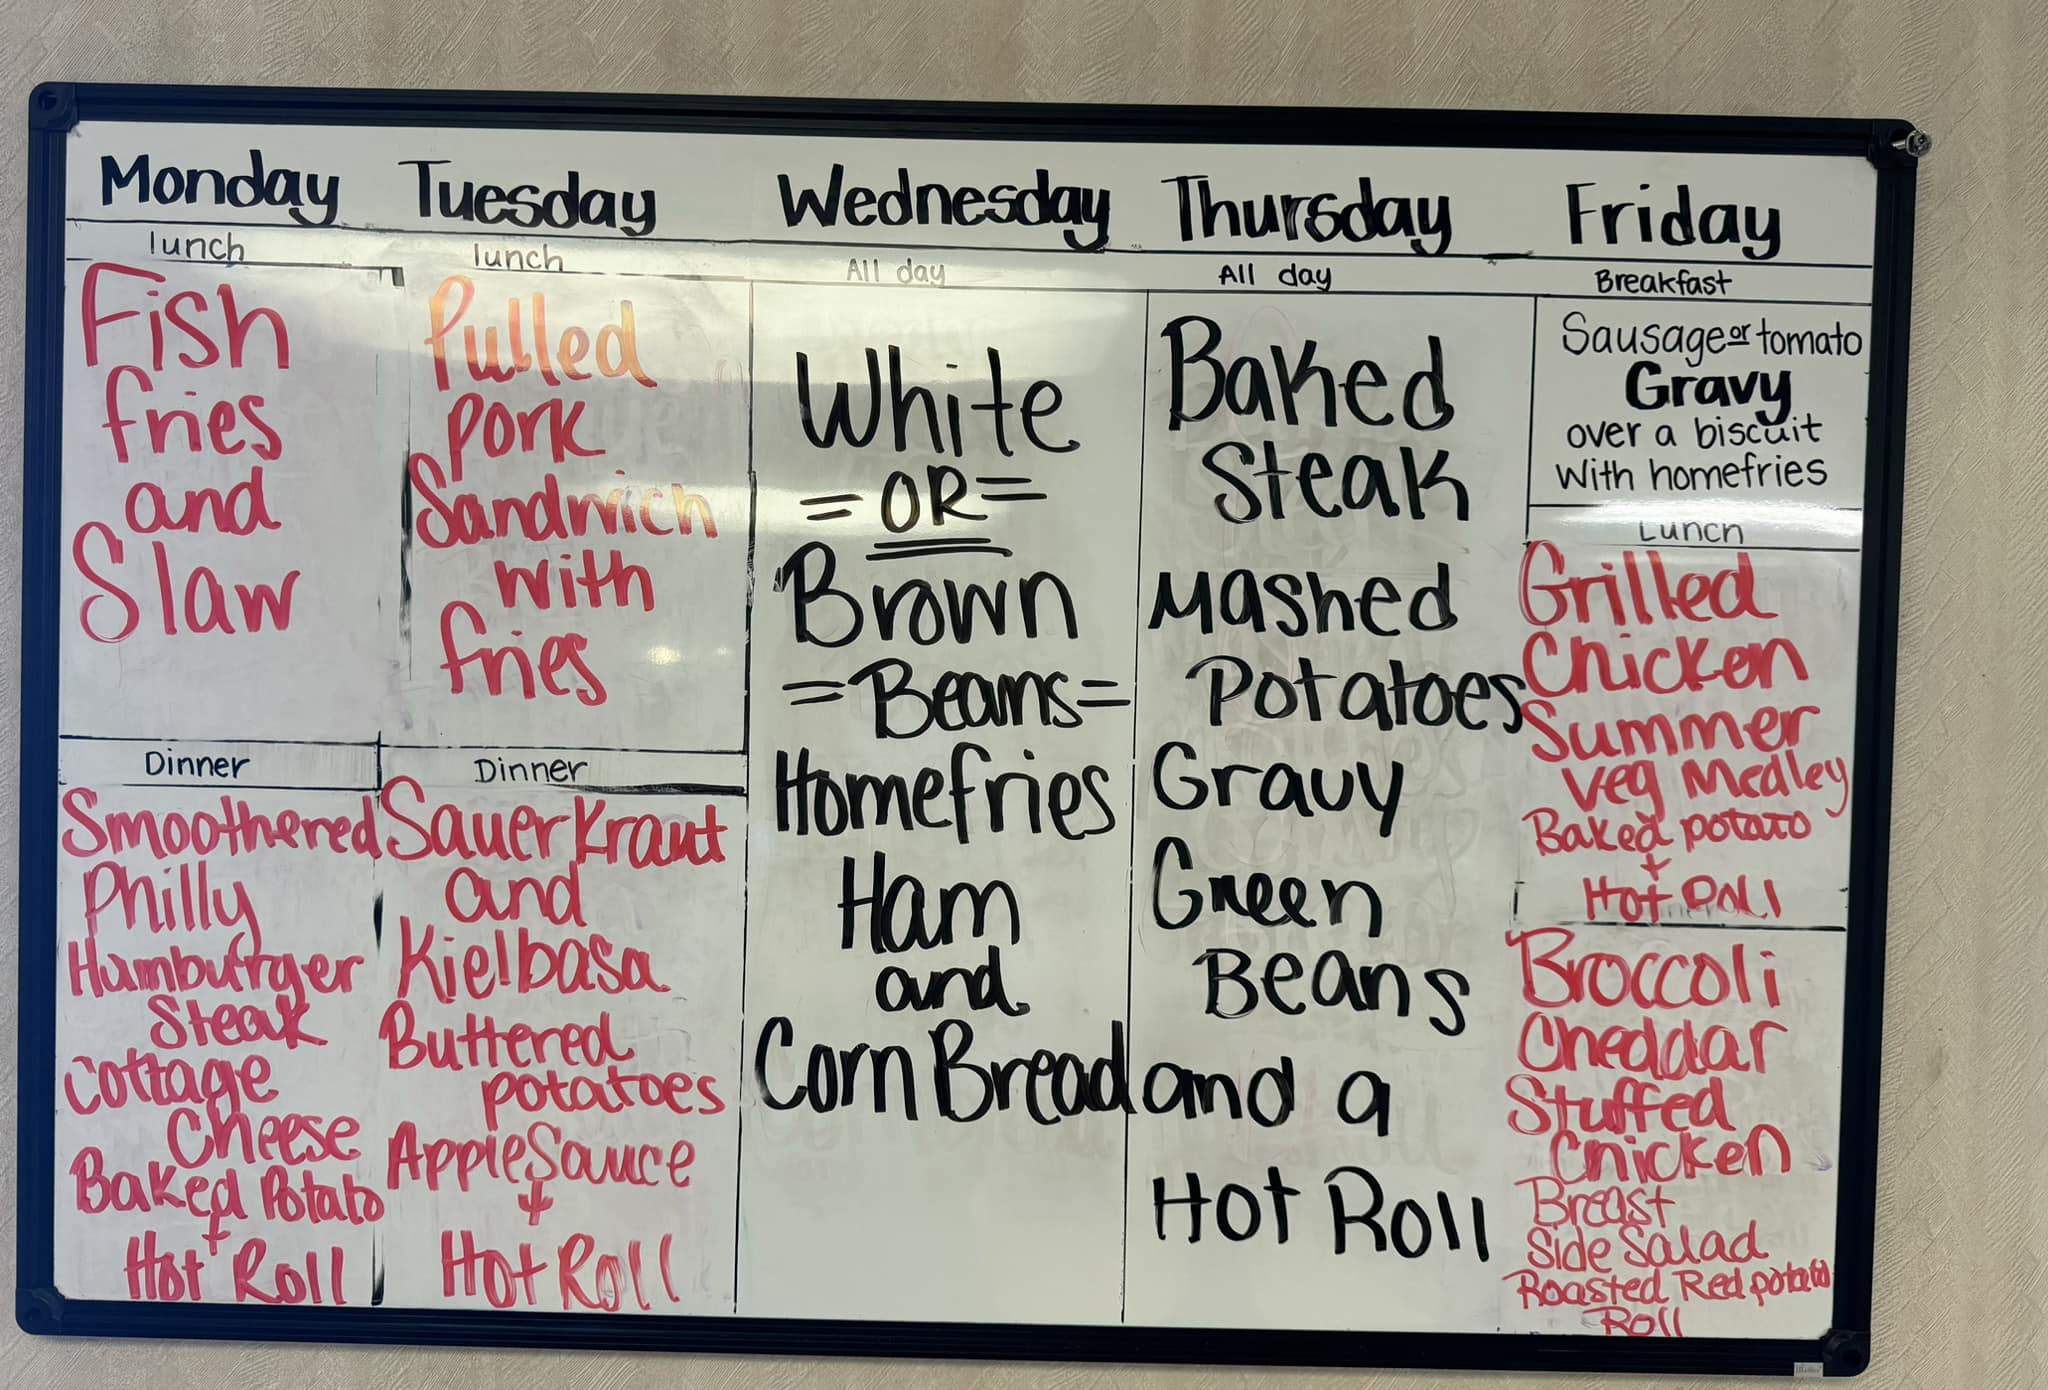 Monday
lunch
Fish
fries
and
Slaw
Dinner
Smoothered
Philly
Hamburger
Steak
Cottage
Cheese
Baked Potato
+
Hot Roll
Tuesday
lunch
Pulled
Pork
Sandwich
with
fries
Dinner
Sauerkraut
and
Kielbasa
Buttered
potatoes
AppleSauce
+
Hot Roll
Wednesday
All day
White
= OR =
Brown
= Beans =
Homefries
Ham
and
Corn Bread
Thursday
All day
Baked
Steak
Mashed
Potatoes
Gravy
Green
Beans
and a
Hot Roll
Friday
Breakfast
Sausage or tomato
Gravy
over a biscuit
with homefries
Lunch
Grilled
Chicken
Summer
Veg Medley
Baked potato
+
Hot Roll
Broccoli
Cheddar
Stuffed
Chicken
Breast
Side Salad
Roasted Red potato
Roll